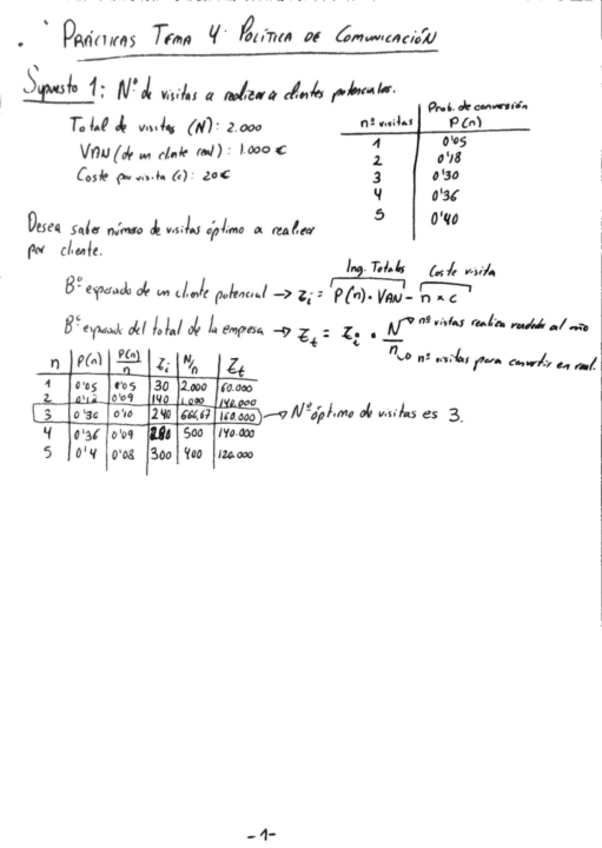 PRÁCTICAS TEMA 4: POLÍTICA DE COMUNICACIÓN
Supuesto 1: Nº de visitas a realizar a clientes potenciales.
Total de visitas (N): 2.000
VAN (de un cliente real): 1.000 €
Coste por visita (c): 20€
nº visitas | Prob. de conversión P(n)
1 0'05
2 0'18
3 0'30
4 0'36
5 0'40
Desea saber número de visitas óptimo a realizar
por cliente.
Ing. Totales Coste visita
Bº esperado de un cliente potencial → Zi = P(n) · VAN - n × c
Bº esperado del total de la empresa → Zt = Zi · N/n
nº visitas realiza vendedor al año
nº visitas para convertir en real.
n | P(n) | P(n)/n | Zi | N/n | Zt
1 0'05 0'05 30 2.000 60.000
2 0'18 0'09 140 1.000 140.000
3 0'30 0'10 240 666,67 160.000 → Nº óptimo de visitas es 3.
4 0'36 0'09 280 500 140.000
5 0'4 0'08 300 400 120.000
-1-